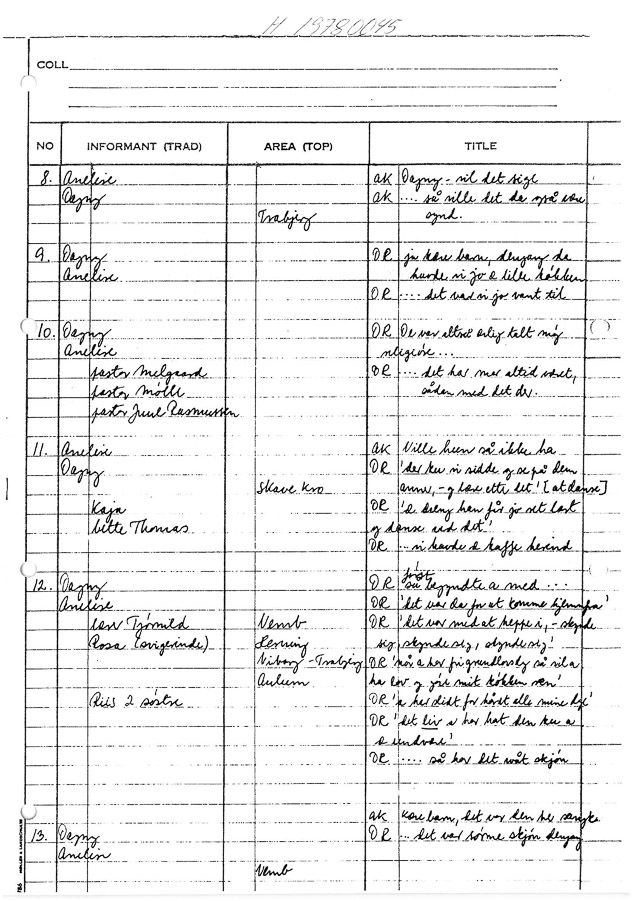 H 19780045
COLL
NO INFORMANT (TRAD) AREA (TOP) TITLE
8. Anelise AK Dagny - vil det sige
Dagny AK .... så ville det da også være
Trabjerg synd.
9. Dagny DR ja kære barn, dengang da
Anelise havde vi jo e lille køkken
DR .... det var vi jo vant til
10. Dagny DR De var altså ærlig talt møj
Anelise religiøse ...
pastor Melgaard DR .... det har mor altid været,
pastor Møller sådan med det der.
pastor Juul Rasmussen
11. Anelise AK Ville hun så ikke ha
Dagny DR 'der ku vi sidde og se på dem
Skave Kro anne, - og lære ette det' [at danse]
Kaja DR 'e dreng han får jo ret lært
bette Thomas og danse ved det'
DR ... vi havde e kaffe herind
12. Dagny DR først så begyndte a med ...
Anelise DR 'det var da for at komme hjemmefra'
Tjørnild Vemb DR 'det var med at keppe i, - skynde
Rosa (svigerinde) sig, skynde sig, skynde sig'
Viborg - Trabjerg DR 'når a har fri grundlovsdag så vil a
Aulum ha lov og gøre mit køkken ren'
2 søstre DR 'a har slidt for hårdt alle mine dage'
DR 'det liv a har hat den ku a
e undvære'
DR .... så har det wåt skjøn
AK Kære barn, det var den her
13. Dagny DR ... det var sørme skjøn dengang
Anelise
Vemb